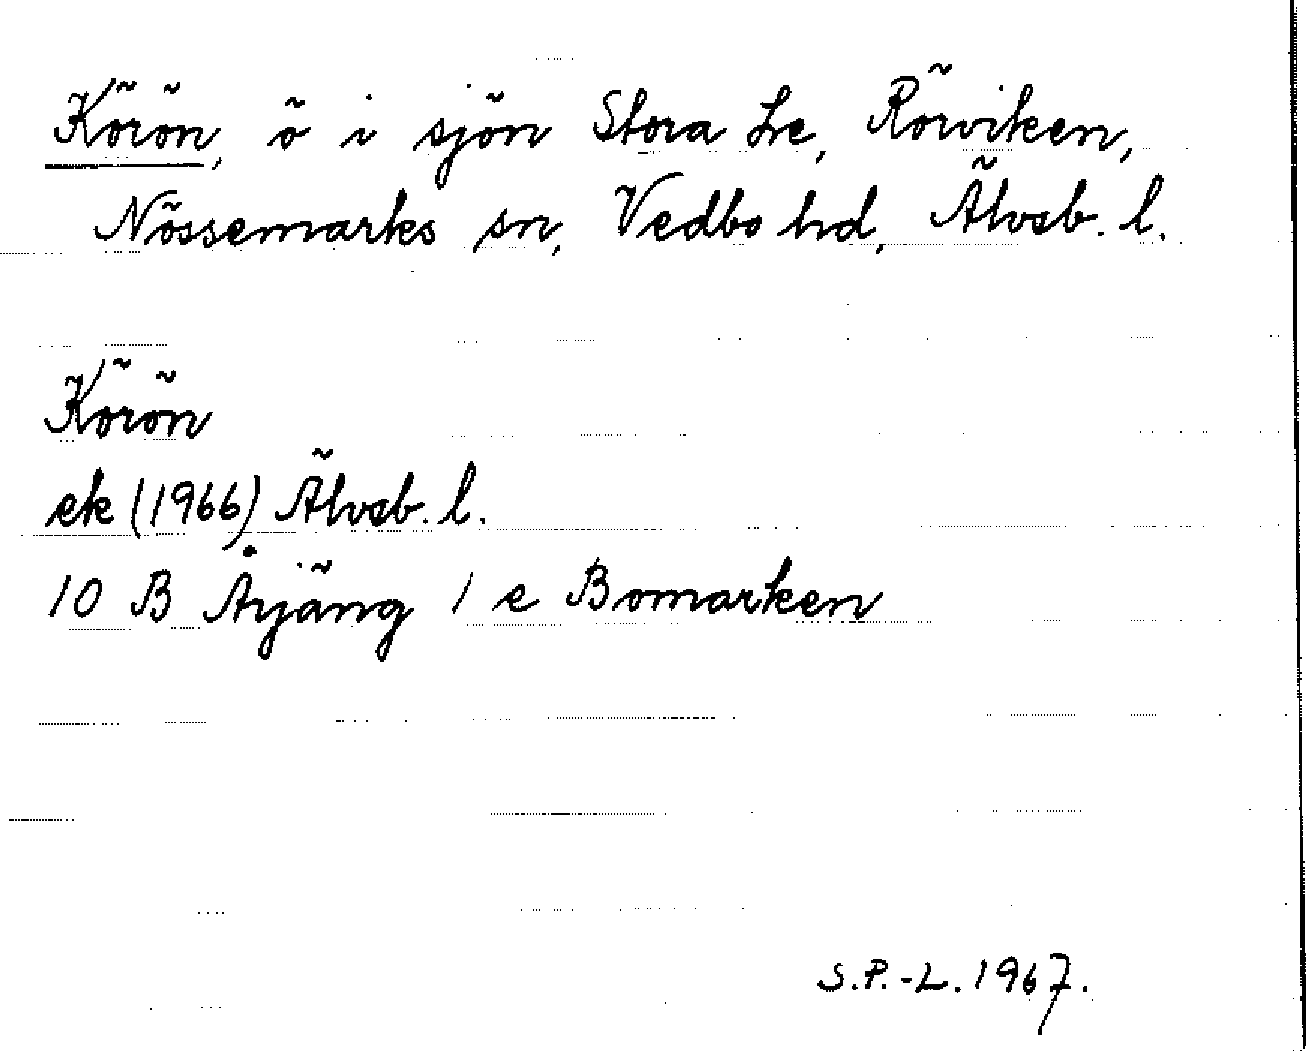 Körön, ö i sjön Stora Le, Rörviken,
Nössemarks sn, Vedbo hd, Älvsb. l.
Körön
ek (1966) Älvsb. l.
10 B Årjäng 1 e Bomarken
S.P.-L. 1967.